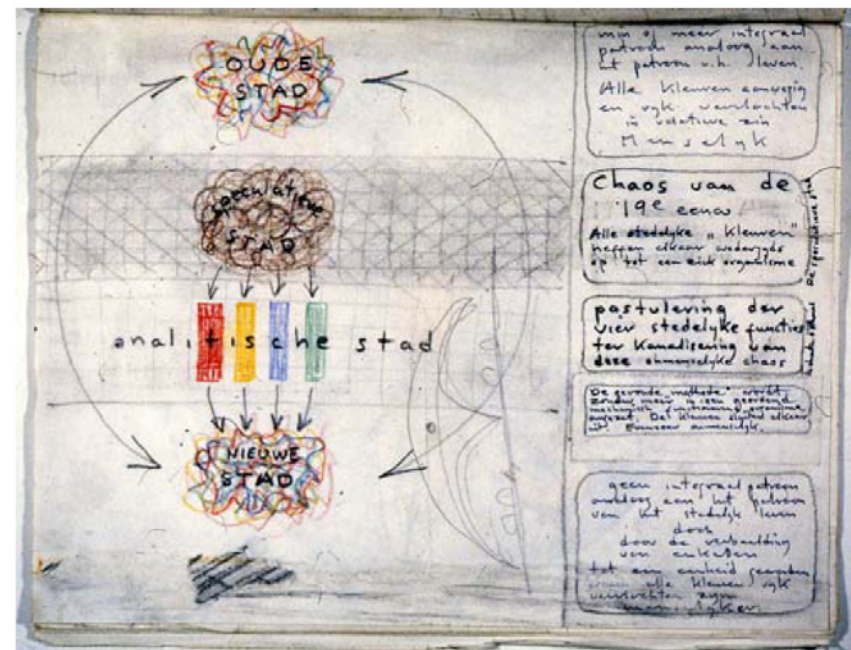 OUDE
STAD
speculatieve
STAD
analitische stad
NIEUWE
STAD
min of meer integraal
patroon analoog aan
het patroon v.h. leven.
Alle kleuren aanwezig
en ryk vervlochten
in relatieve zin
Menselyk
Chaos van de
19e eeuw
Alle stedelyke „kleuren"
heffen elkaar wederzyds
op tot een ziek organisme
De speculatieve stad
postulering der
vier stedelyke functies
ter kanalisering van
deze onmenselyke chaos
De gevonde methode wordt
zonder meer in een geordend
mechanisch functionerend organisme
omgezet. De kleuren sluiten elkaar
uit. Evenzeer onmenselyk.
geen integraal patroon
analoog aan het patroon
van het stedelyk leven
door de verbeelding
van enkelen
tot een eenheid geworden
alle kleuren ryk
vervlochten zyn
menselyker.